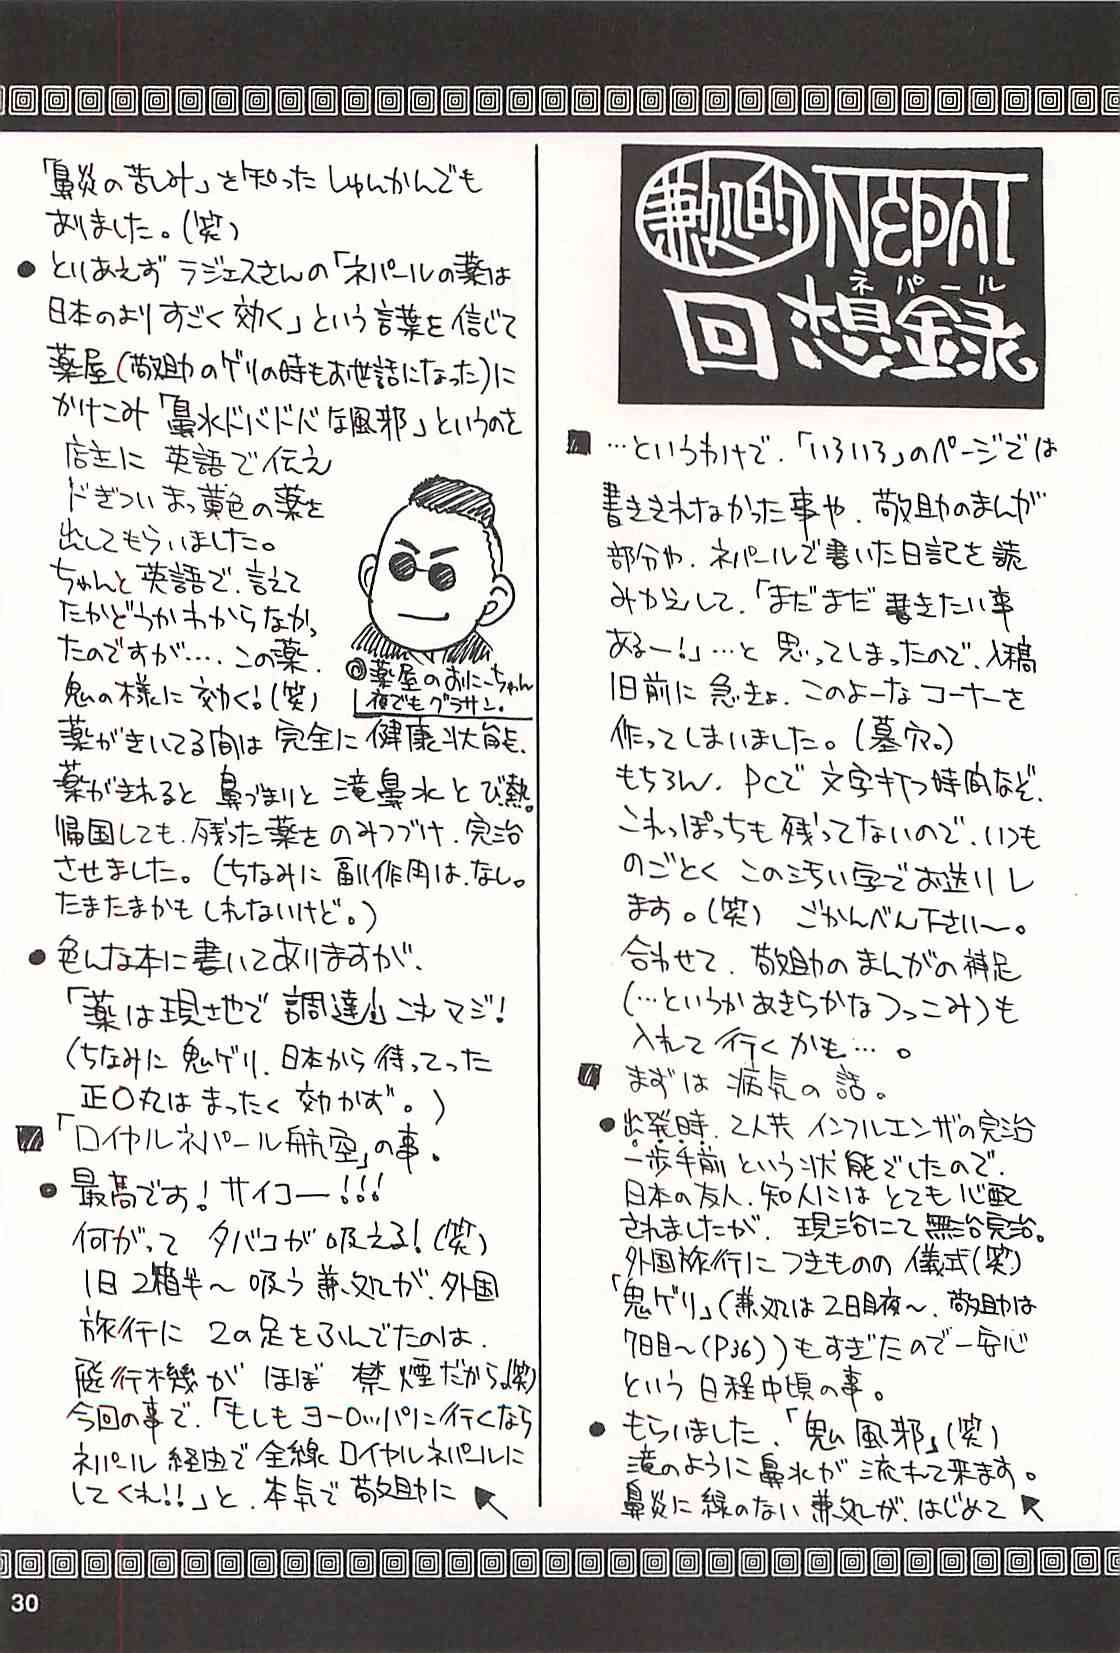 兼処的 NEPAL
ネパール
回想録
…というわけで、「いろいろ」のページでは
書ききれなかった事や、敬助のまんが
部分や、ネパールで書いた日記を読
みかえして、「まだまだ書きたい事
あるー!」…と思ってしまったので、入稿
1日前に急きょ、このよーなコーナーを
作ってしまいました。(墓穴。)
もちろん、PCで文字打つ時間など、
これっぽっちも残ってないので、いつも
のごとくこの汚い字でお送りし
ます。(笑) ごかんべん下さい〜。
合わせて、敬助のまんがの補足
(…というかあきらかなつっこみ)も
入れて行くかも…。
まずは病気の話。
●出発時、2人共インフルエンザの完治
一歩手前という状態でしたので、
日本の友人、知人にはとても心配
されましたが、現治にて無治完治。
外国旅行につきものの儀式(笑)
「鬼ゲリ」(兼処は2日目夜〜、敬助は
7日目〜(P36))もすぎたので一安心
という日程中頃の事。
●もらいました、「鬼風邪」(笑)
滝のように鼻水が流れて来ます。
鼻炎に縁のない兼処が、はじめて
「鼻炎の苦しみ」を知ったしゅんかんでも
ありました。(笑)
●とりあえずラジェスさんの「ネパールの薬は
日本のよりすごく効く」という言葉を信じて
薬屋(敬助のゲリの時もお世話になった)に
かけこみ「鼻水ドバドバな風邪」というのを
店主に英語で伝え
ドぎついまっ黄色の薬を
出してもらいました。
ちゃんと英語で、言えて
たかどうかわからなかっ
たのですが…、この薬、
鬼の様に効く!(笑)
薬がきいてる間は完全に健康状態、
薬がきれると鼻づまりと滝鼻水とび熱。
帰国しても、残った薬をのみつづけ、完治
させました。(ちなみに副作用は、なし。
たまたまかもしれないけど。)
◎薬屋のおにーちゃん
夜でもグラサン。
●色んな本に書いてありますが、
「薬は現地で調達」これマジ!
(ちなみに鬼ゲリ、日本から持ってった
正○丸はまったく効かず。)
「ロイヤルネパール航空」の事。
●最高です!サイコー!!!
何がってタバコが吸える!(笑)
1日2箱半〜吸う兼処が、外国
旅行に2の足をふんでたのは、
飛行機がほぼ禁煙だから。(笑)
今回の事で、「もしもヨーロッパに行くなら
ネパール経由で全線ロイヤルネパールに
してくれ!!」と、本気で敬助に
30